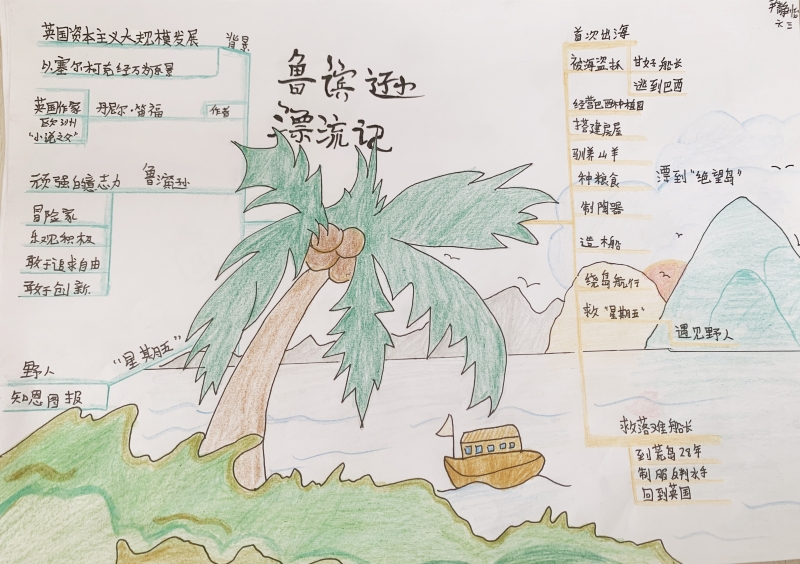 六三
鲁滨逊
漂流记
英国资本主义大规模发展
背景
以塞尔柯克经历为原型
英国作家
丹尼尔·笛福
作者
欧洲
"小说之父"
顽强的意志力
鲁滨孙
冒险家
乐观积极
敢于追求自由
敢于创新
"星期五"
野人
知恩图报
首次出海
被海盗抓
甘好船长
逃到巴西
经营巴西种植园
搭建房屋
驯养山羊
漂到"绝望岛"
种粮食
制陶器
造木船
绕岛航行
救"星期五"
遇见野人
救落难船长
到荒岛28年
制服反判水手
回到英国